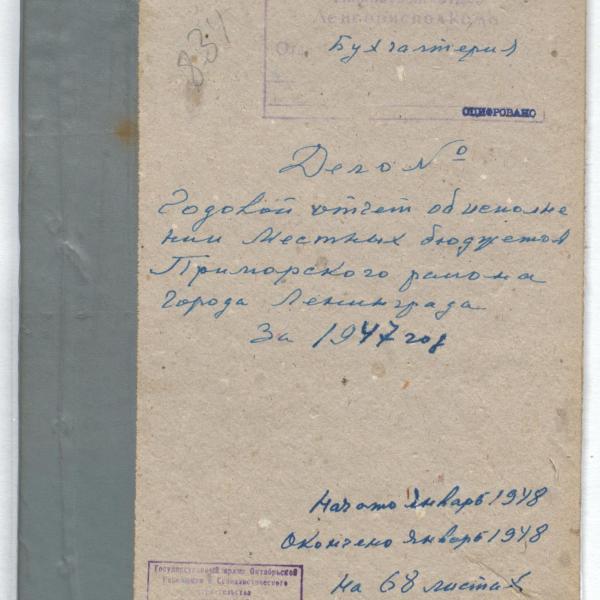 834
Ленгорисполкома
Бухгалтерия
ОЦИФРОВАНО
Дело №
Годовой отчет об исполне
нии местных бюджетов
Приморского района
города Ленинграда
За 1947 год
Начато январь 1948
Окончено январь 1948
На 68 листах
Государственный архив Октябрьской
Революции и Социалистического